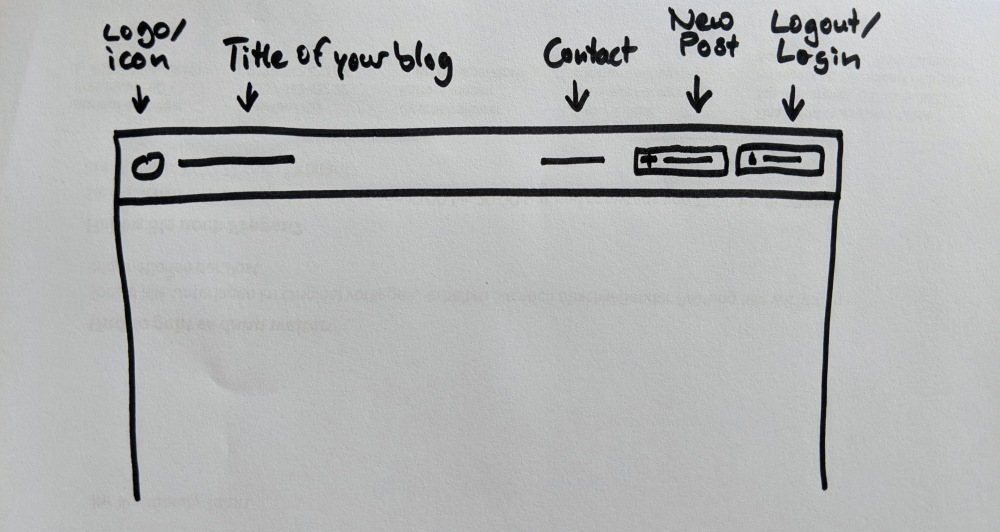 Logo/
icon
Title of your blog
Contact
New
Post
Logout/
Login